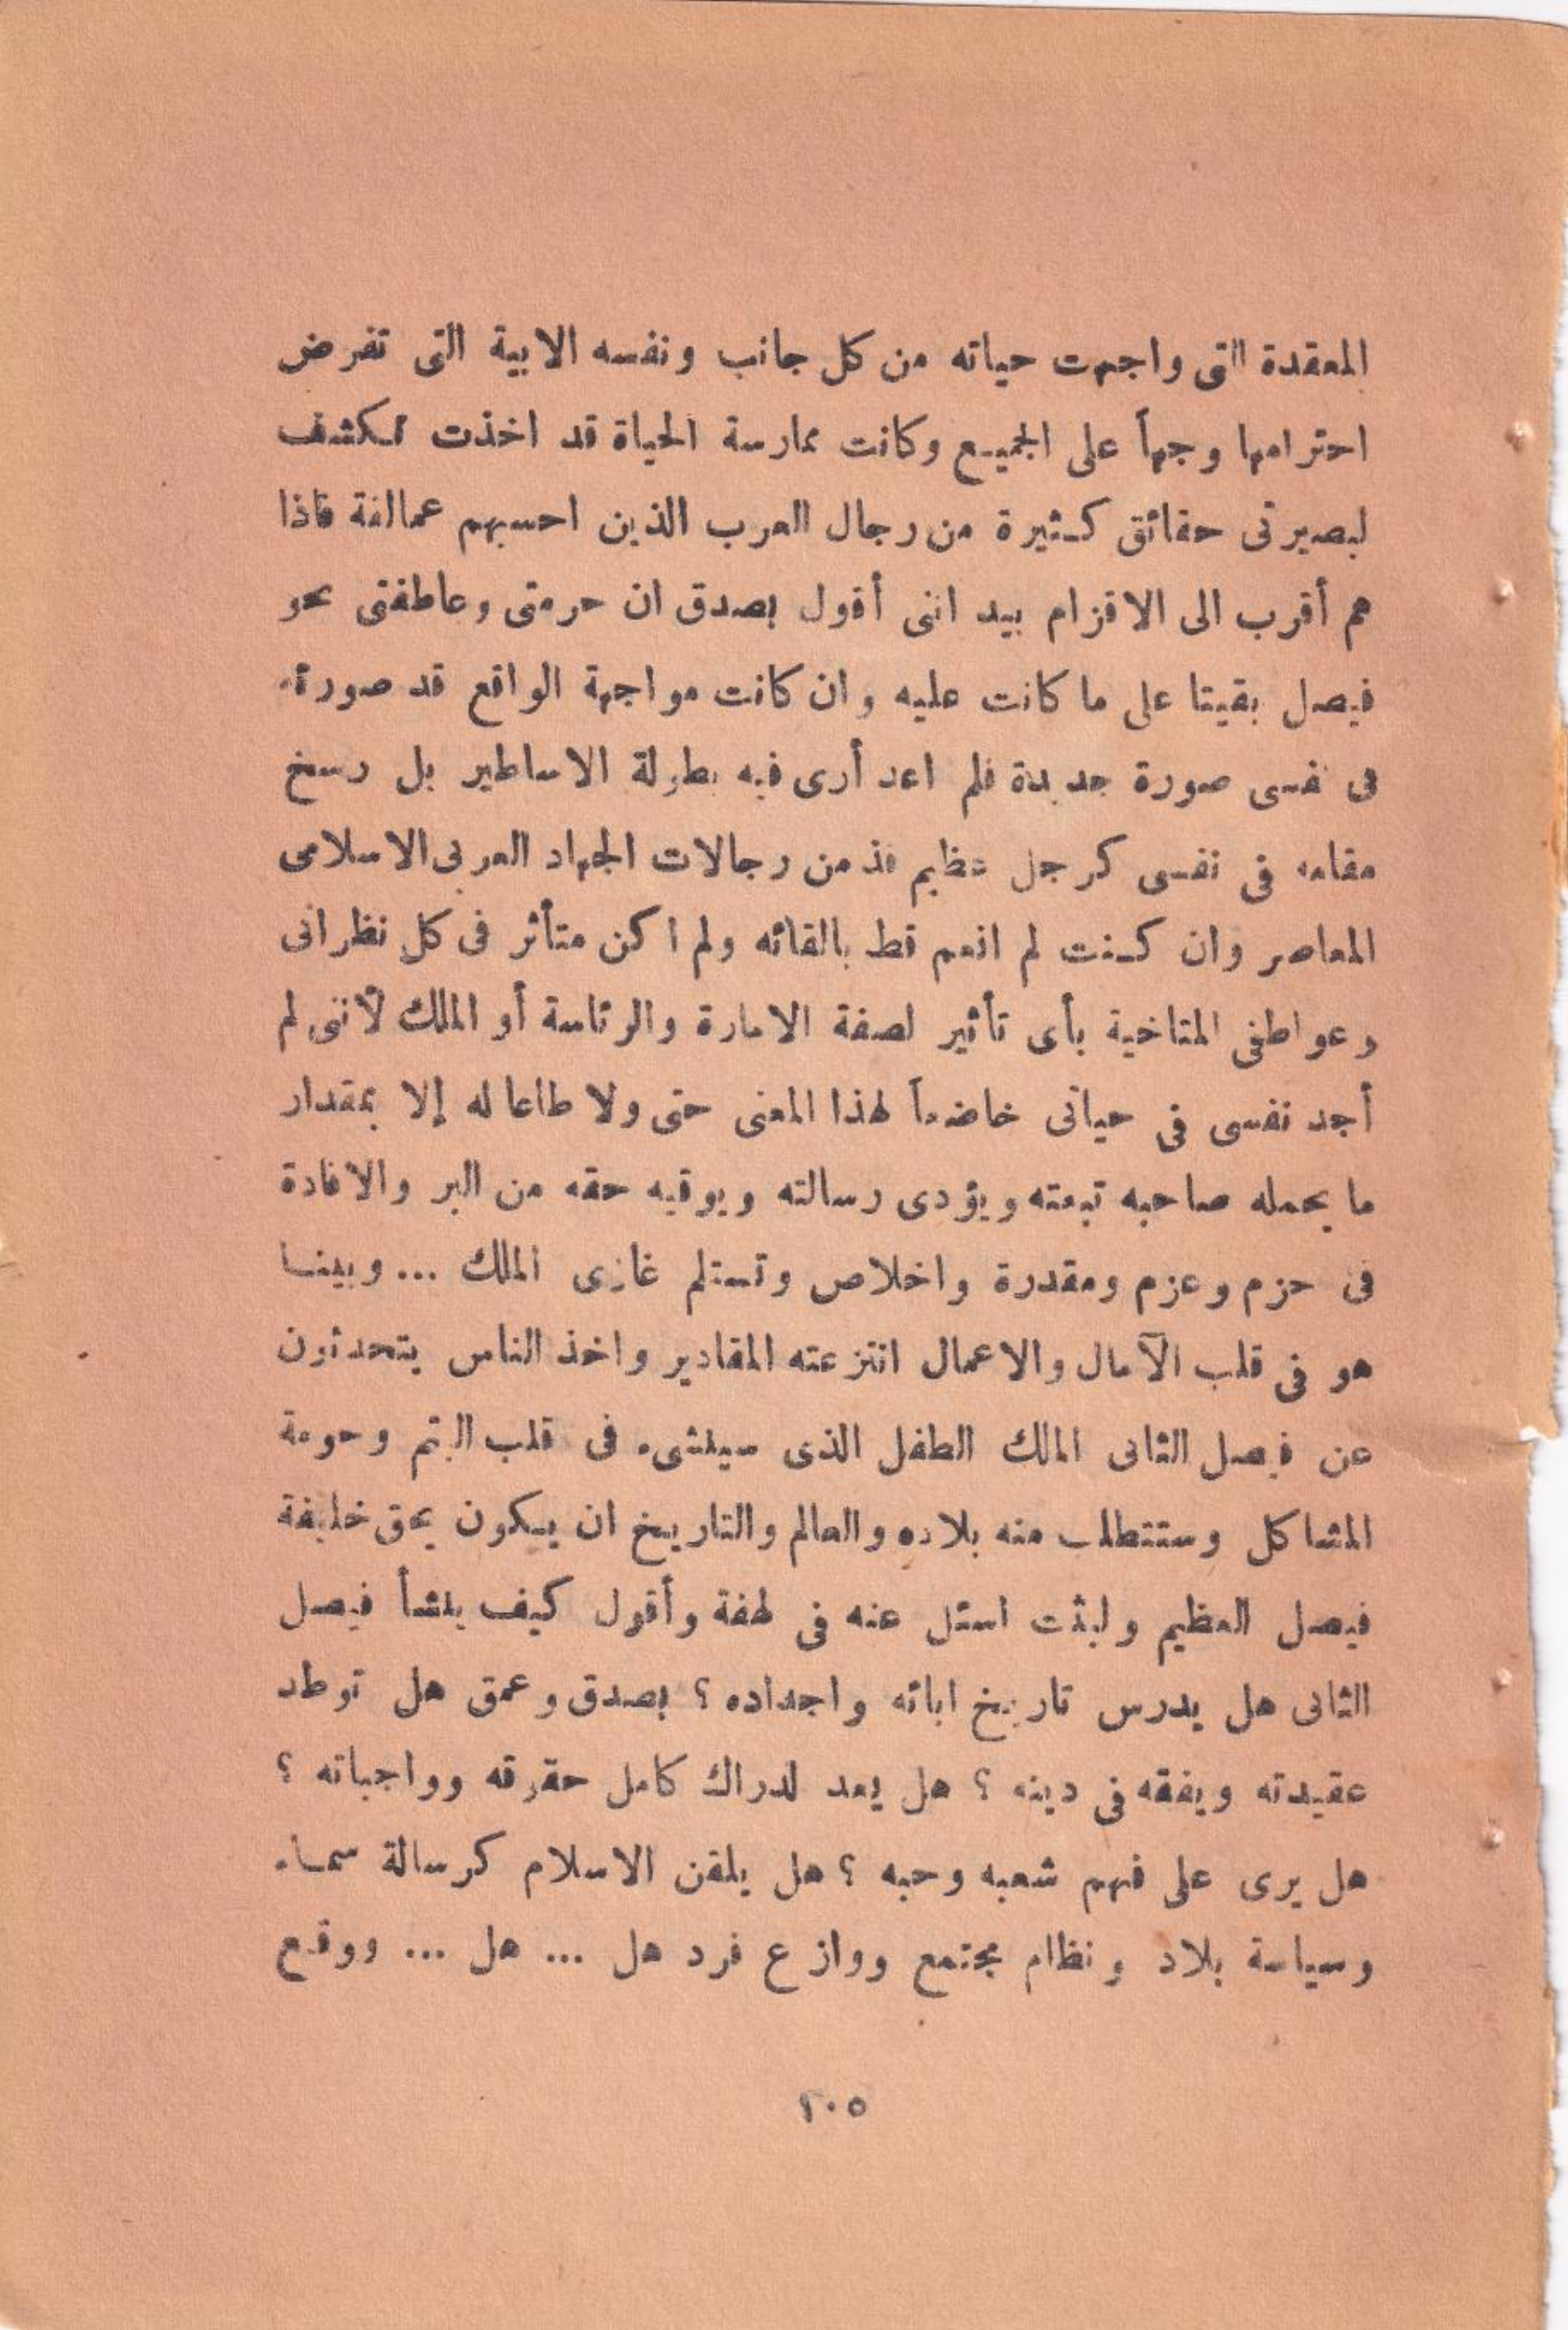 المعقدة التى واجهت حياته من كل جانب ونفسه الابية التى تفرض
احترامها وجهاً على الجميع وكانت ممارسة الحياة قد اخذت تكشف
لبصيرتى حقائق كثيرة من رجال العرب الذين احسبهم عمالقة فاذا
هم أقرب الى الاقزام بيد اننى أقول بصدق ان حرمتى وعاطفتى نحو
فيصل بقيتا على ما كانت عليه وان كانت مواجهة الواقع قد صورته
فى نفسى صورة جديدة فلم اعد أرى فيه بطولة الاساطير بل رسخ
مقامه فى نفسى كرجل عظيم فذ من رجالات الجهاد العربى الاسلامى
المعاصر وان كنت لم انعم قط بالقائه ولم اكن متأثر فى كل نظراتى
وعواطفى المتاخية بأى تأثير لصفة الامارة والرئاسة أو الملك لأننى لم
أجد نفسى فى حياتى خاضعاً لهذا المعنى حتى ولا طاعا له إلا بمقدار
ما يحمله صاحبه تبعته ويؤدى رسالته ويوقيه حقه من البر والافادة
فى حزم وعزم ومقدرة واخلاص وتستلم غازى الملك ... وبينا
هو فى قلب الآمال والاعمال انتزعته المقادير واخذ الناس يتحدثون
عن فيصل الثانى المالك الطفل الذى سينشىء فى قلب اليتم وحومة
المشاكل وستتطلب منه بلاده والعالم والتاريخ ان يكون بحق خليفة
فيصل العظيم ولبثت اسئل عنه فى لهفة وأقول كيف ينشأ فيصل
الثانى هل يدرس تاريخ ابائه واجداده ؟ بصدق وعمق هل توطد
عقيدته ويفقه فى دينه ؟ هل يعد لدراك كامل حقوقه وواجباته ؟
هل يرى على فهم شعبه وحبه ؟ هل يلقن الاسلام كرسالة سماء
وسياسة بلاد ونظام مجتمع ووازع فرد هل ... هل ... ووقع
٢٠٥